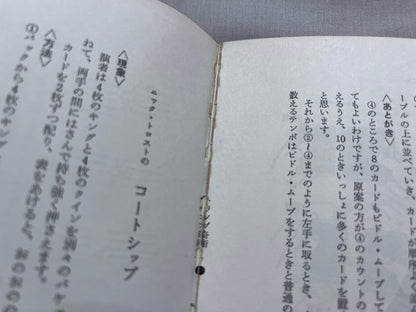 ーブルの上に並べていき、カードが順序よく
〈あとがき〉
④のところで8のカードもビドル・ムーブして
てもよいわけですが、原案の方が④のカウントの
えるうえ、10のときいっしょに多くのカードを置
と思います。
それから③〜④までのように左手に取るとき、
数えるテンポはビドル・ムーブをするときと普通の
ニック・トロストの
コートシップ
〈現象〉
演者は4枚のキングと4枚のクインを別々のパケ
ねて、両手の間にはさんで持ち、強く押さえます。
カードを2枚ずつ配り、表をあけると、おのおの
〈方法〉
①パックから4枚のキング